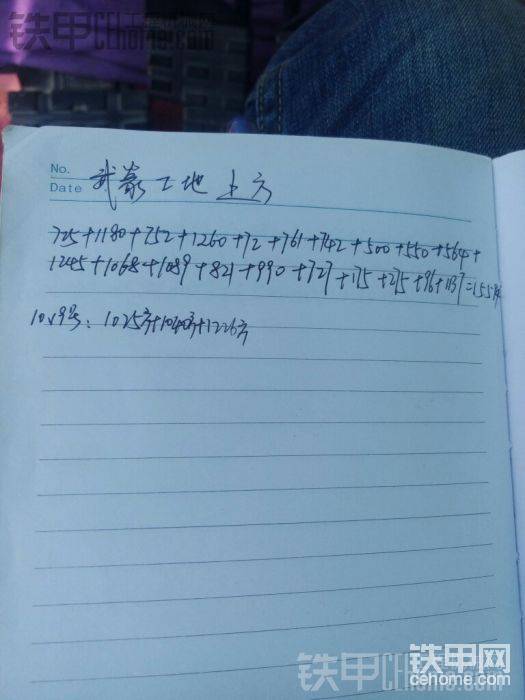 铁甲 cehome.com
No.
Date 武 工地 土方
725+1180+752+1260+72+761+742+500+550+564+
1245+1068+1089+821+990+727+175+275+96+1137=
10.9号: 1025方+1040方+1226方
铁甲 cehome.com
铁甲网
cehome.com